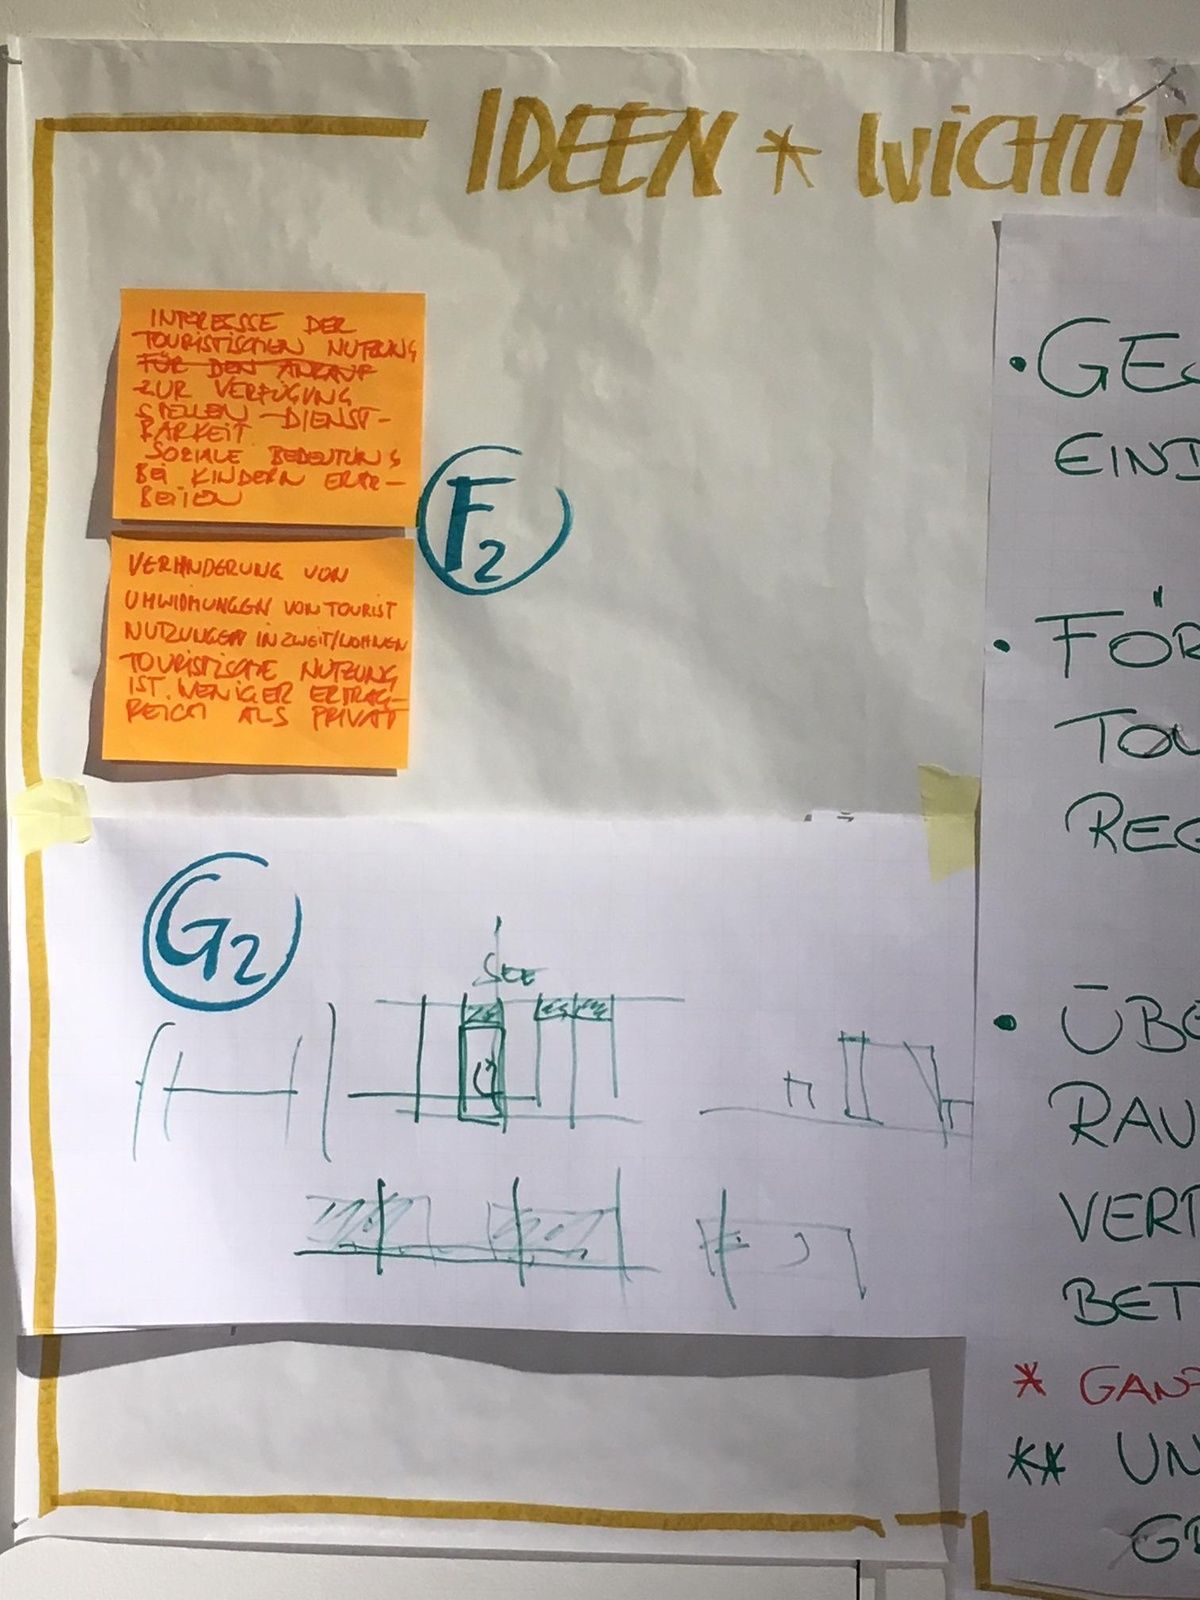 IDEEN * WICHTI
INTERESSE DER
TOURISTISCHEN NUTZUNG
FÜR DEN ANKAUF
ZUR VERFÜGUNG
STELLEN - DIENST-
BARKEIT.
SOZIALE BEDEUTUNG
BEI KINDERN ERAR-
BEITEN
F2
VERHINDERUNG VON
UMWIDMUNGEN VON TOURIST
NUTZUNGEN IN ZWEIT/WOHNEN
TOURISTISCHE NUTZUNG
IST WENIGER ERTRAG-
REICH ALS PRIVAT
G2
SEE
• GES
EIND
• FÖR
TOU
REG
• ÜBE
RAU
VER
BET
* GANZ
** UN
GE